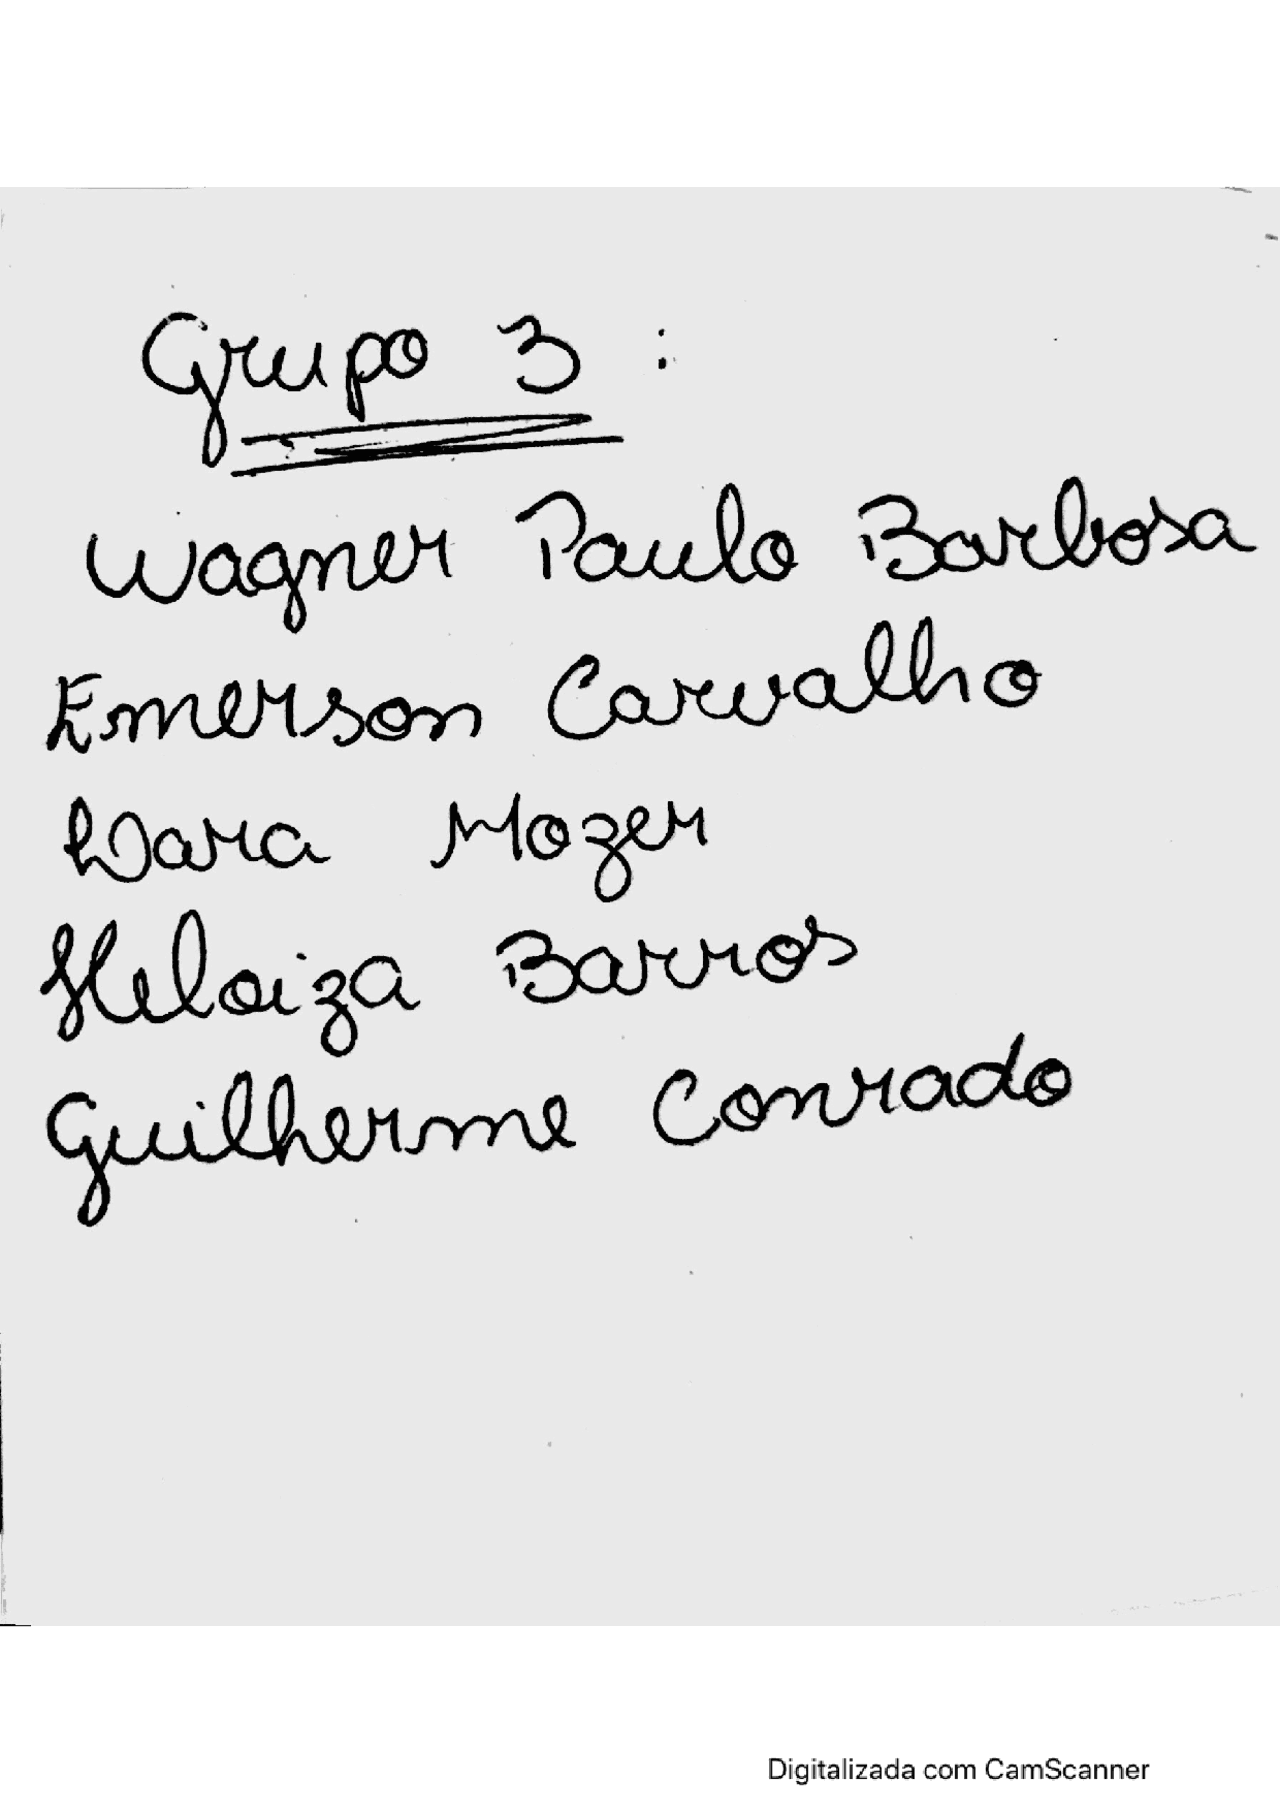 Grupo 3 :
Wagner Paulo Barbosa
Emerson Carvalho
Dara Mozer
Heloiza Barros
Guilherme Conrado
Digitalizada com CamScanner